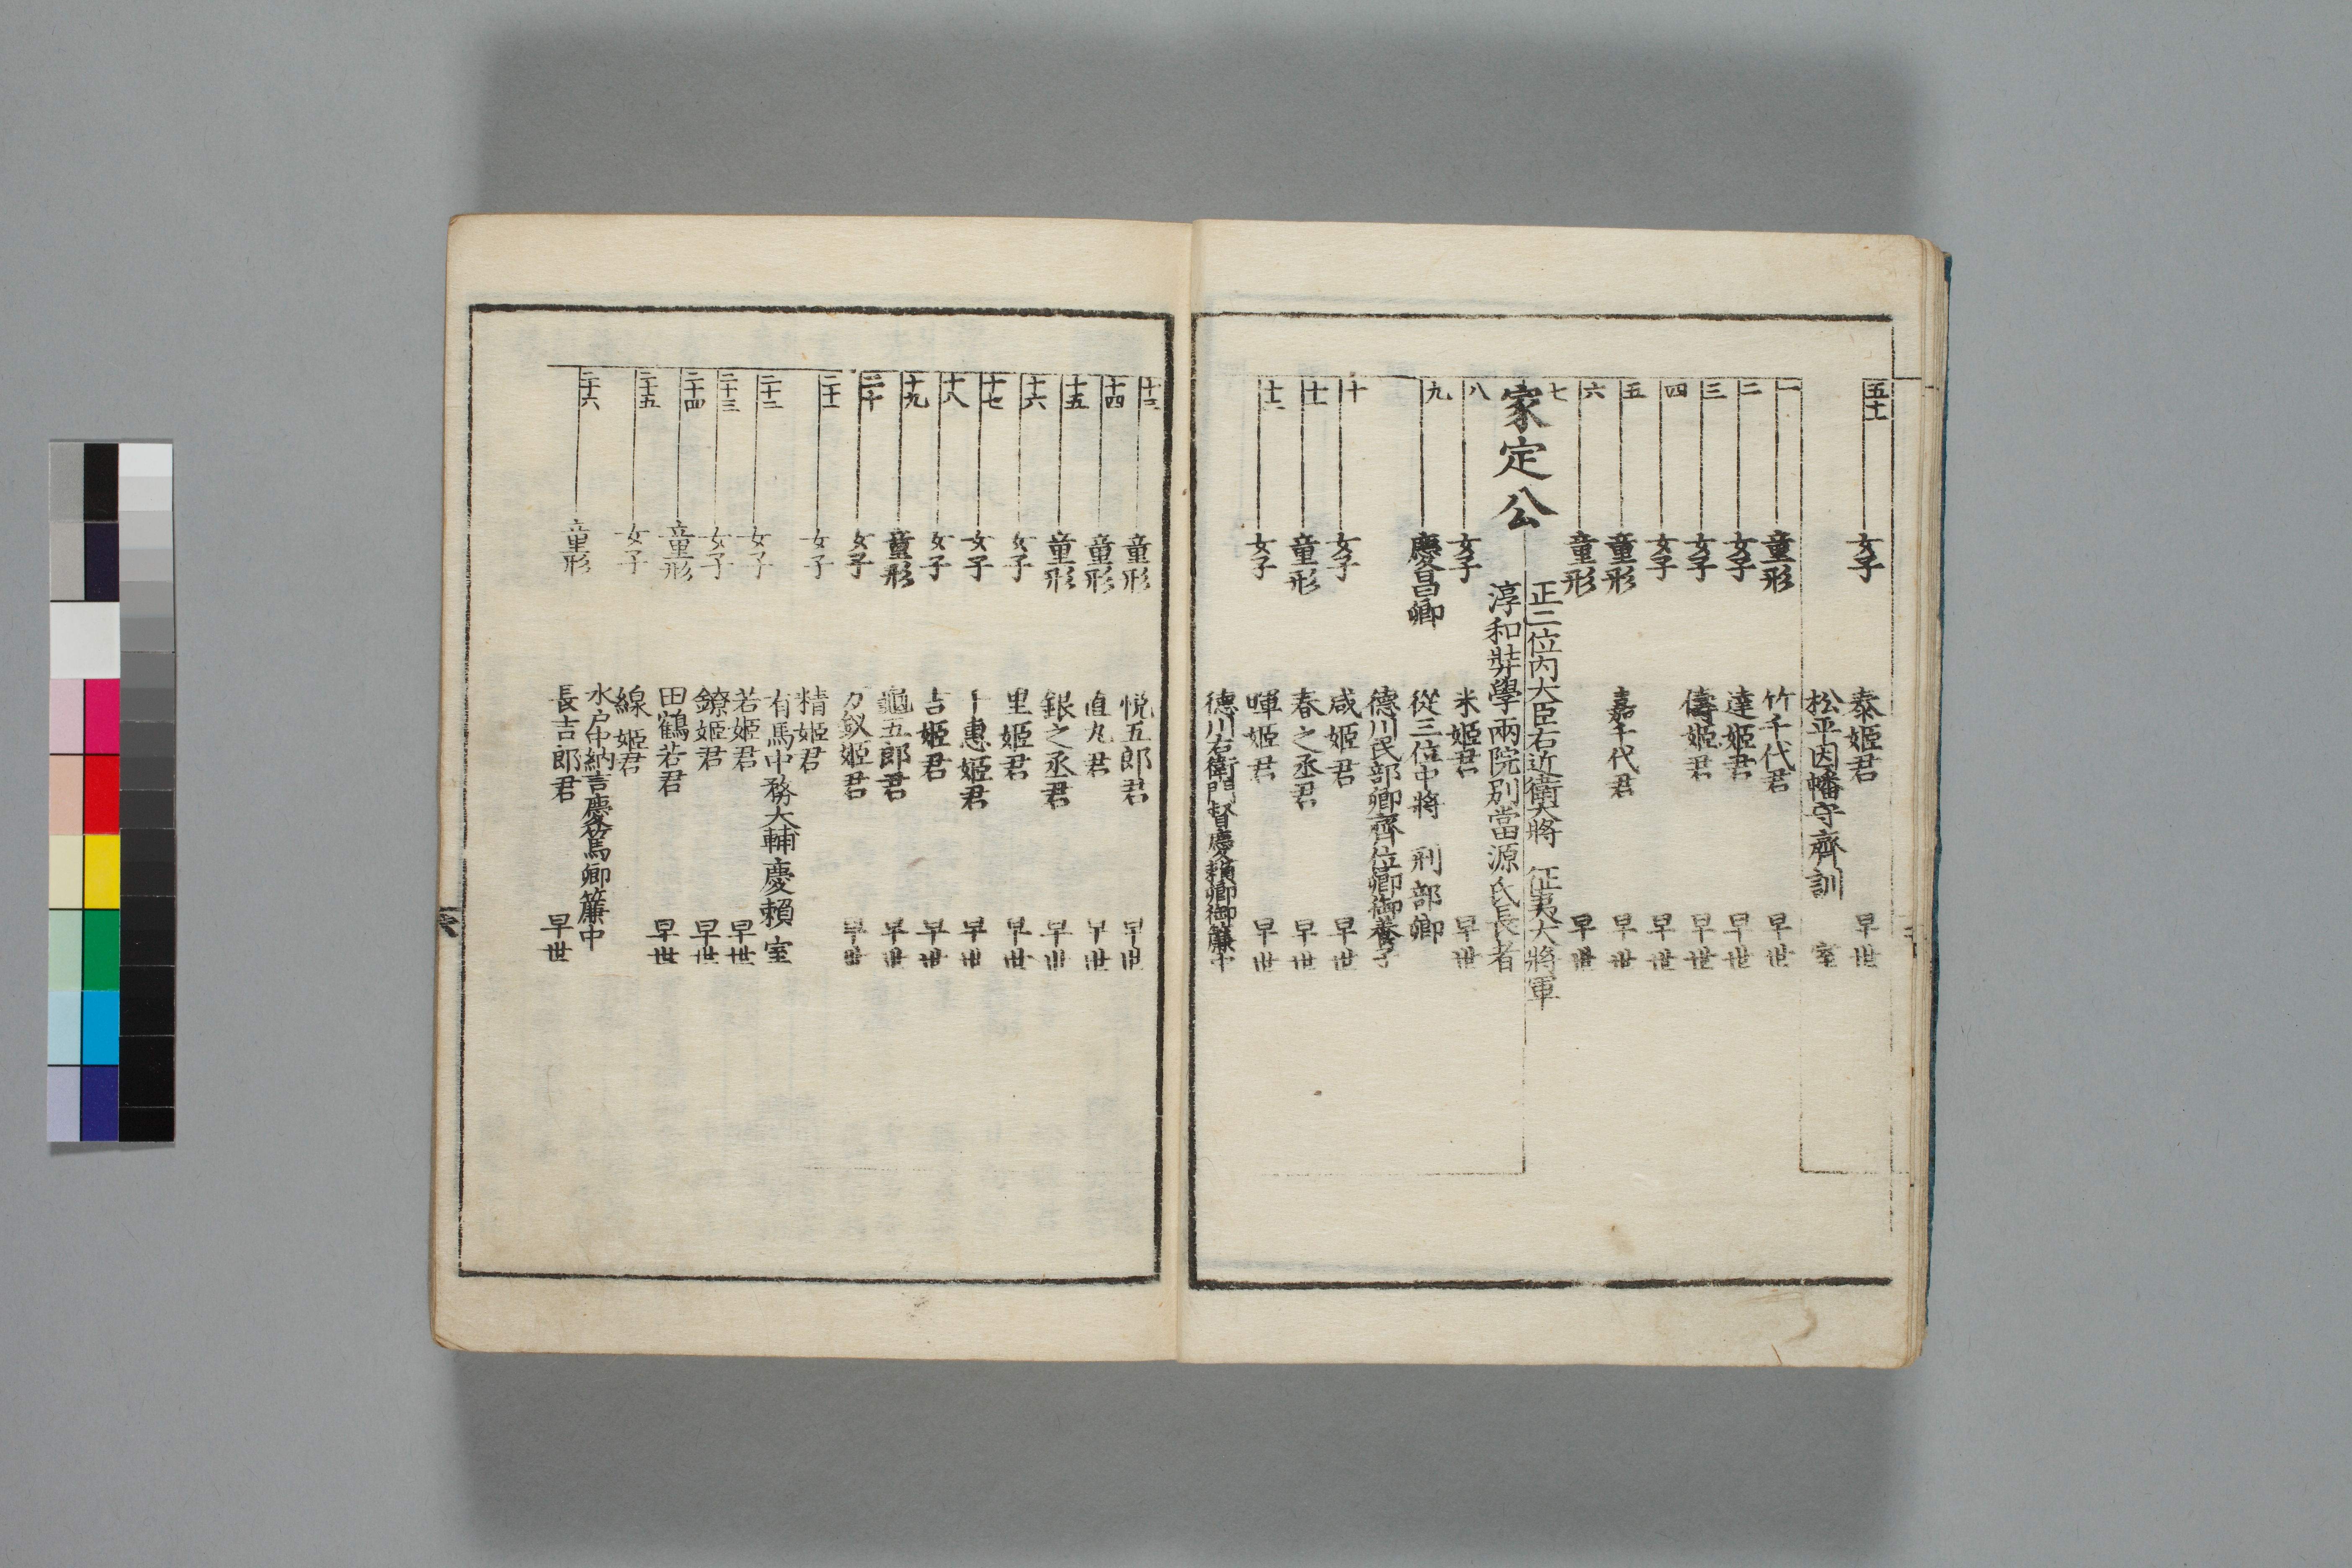 五十
女子
泰姬君
早世
松平因幡守齊訓
室
一
童形
竹千代君
早世
二
女子
達姬君
早世
三
女子
儔姬君
早世
四
女子
早世
五
童形
嘉千代君
早世
六
童形
早世
七
家定公
正二位內大臣右近衛大將 征夷大將軍
淳和奬學兩院別當源氏長者
八
女子
米姬君
早世
九
慶昌卿
從三位中將 刑部卿
德川民部卿齊位卿御養子
十
女子
咸姬君
早世
十一
童形
春之丞君
早世
十二
女子
暉姬君
早世
德川右衛門督慶賴卿御簾中
十三
童形
悅五郎君
早世
十四
童形
直丸君
早世
十五
童形
銀之丞君
早世
十六
女子
里姬君
早世
十七
女子
千惠姬君
早世
十八
女子
吉姬君
早世
十九
童形
龜五郎君
早世
二十
女子
姬君
早世
二十一
女子
精姬君
有馬中務大輔慶賴 室
二十二
女子
若姬君
早世
二十三
女子
鐐姬君
早世
二十四
童形
田鶴若君
早世
二十五
女子
線姬君
水戶中納言慶篤卿簾中
二十六
童形
長吉郎君
早世